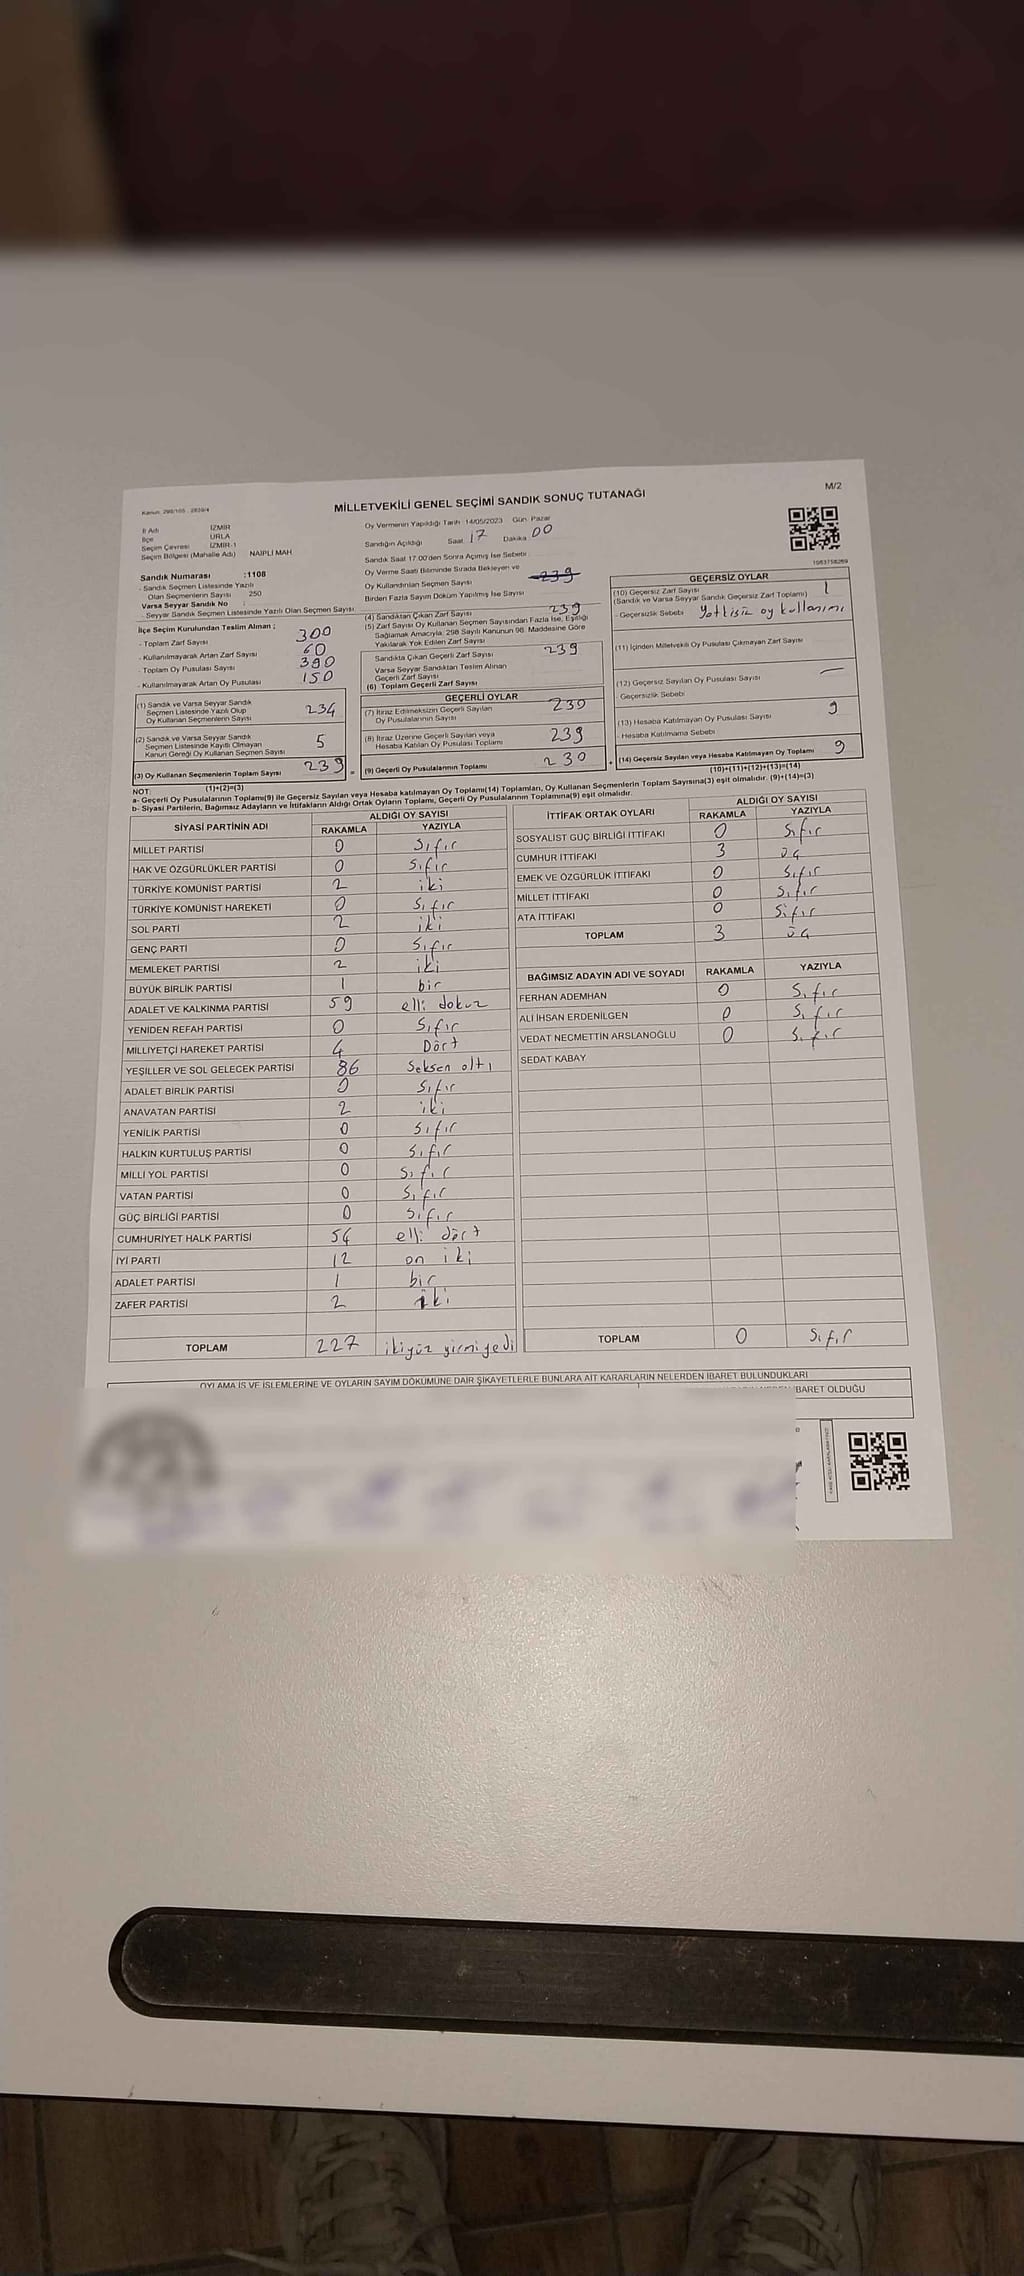 M/2
MİLLETVEKİLİ GENEL SEÇİMİ SANDIK SONUÇ TUTANAĞI
İl Adı İZMİR
İlçe URLA
Seçim Çevresi İZMİR-1
Seçim Bölgesi (Mahalle Adı) NAİPLİ MAH
Sandık Numarası :1108
- Sandık Seçmen Listesinde Yazılı
Olan Seçmenlerin Sayısı 250
Varsa Seyyar Sandık No :
- Seyyar Sandık Seçmen Listesinde Yazılı Olan Seçmen Sayısı
Oy Vermenin Yapıldığı Tarih 14/05/2023 Gün Pazar
Sandığın Açıldığı Saat 17 Dakika 00
Sandık Saat 17.00'den Sonra Açılmış İse Sebebi
Oy Verme Saati Bitiminde Sırada Bekleyen ve
Oy Kullandırılan Seçmen Sayısı 239
Birden Fazla Sayım Döküm Yapılmış İse Sayısı
1983758269
İlçe Seçim Kurulundan Teslim Alınan ;
- Toplam Zarf Sayısı 300
- Kullanılmayarak Artan Zarf Sayısı 60
- Toplam Oy Pusulası Sayısı 390
- Kullanılmayarak Artan Oy Pusulası 150
(1) Sandık ve Varsa Seyyar Sandık
Seçmen Listesinde Yazılı Olup
Oy Kullanan Seçmenlerin Sayısı 234
(2) Sandık ve Varsa Seyyar Sandık
Seçmen Listesinde Kayıtlı Olmayan
Kanun Gereği Oy Kullanan Seçmen Sayısı 5
(3) Oy Kullanan Seçmenlerin Toplam Sayısı 239
(1)+(2)=(3)
(4) Sandıktan Çıkan Zarf Sayısı 239
(5) Zarf Sayısı Oy Kullanan Seçmen Sayısından Fazla İse, Eşitliği
Sağlamak Amacıyla, 298 Sayılı Kanunun 98. Maddesine Göre
Yakılarak Yok Edilen Zarf Sayısı
Sandıkta Çıkan Geçerli Zarf Sayısı 239
Varsa Seyyar Sandıktan Teslim Alınan
Geçerli Zarf Sayısı
(6) Toplam Geçerli Zarf Sayısı
GEÇERLİ OYLAR
(7) İtiraz Edilmeksizin Geçerli Sayılan
Oy Pusulalarının Sayısı 239
(8) İtiraz Üzerine Geçerli Sayılan veya
Hesaba Katılan Oy Pusulası Toplamı 239
(9) Geçerli Oy Pusulalarının Toplamı 230
GEÇERSİZ OYLAR
(10) Geçersiz Zarf Sayısı
(Sandık ve Varsa Seyyar Sandık Geçersiz Zarf Toplamı) 1
- Geçersizlik Sebebi Yetkisiz oy kullanımı
(11) İçinden Milletvekili Oy Pusulası Çıkmayan Zarf Sayısı
(12) Geçersiz Sayılan Oy Pusulası Sayısı
- Geçersizlik Sebebi
(13) Hesaba Katılmayan Oy Pusulası Sayısı 9
- Hesaba Katılmama Sebebi
(14) Geçersiz Sayılan veya Hesaba Katılmayan Oy Toplamı 9
(10)+(11)+(12)+(13)=(14)
NOT:
a- Geçerli Oy Pusulalarının Toplamı(9) ile Geçersiz Sayılan veya Hesaba katılmayan Oy Toplamı(14) Toplamları, Oy Kullanan Seçmenlerin Toplam Sayısına(3) eşit olmalıdır. (9)+(14)=(3)
b- Siyasi Partilerin, Bağımsız Adayların ve İttifakların Aldığı Ortak Oyların Toplamı, Geçerli Oy Pusulalarının Toplamına(9) eşit olmalıdır.
SİYASİ PARTİNİN ADI ALDIĞI OY SAYISI
RAKAMLA YAZIYLA
MİLLET PARTİSİ 0 Sıfır
HAK VE ÖZGÜRLÜKLER PARTİSİ 0 Sıfır
TÜRKİYE KOMÜNİST PARTİSİ 2 iki
TÜRKİYE KOMÜNİST HAREKETİ 0 Sıfır
SOL PARTİ 2 iki
GENÇ PARTİ 0 Sıfır
MEMLEKET PARTİSİ 2 iki
BÜYÜK BİRLİK PARTİSİ 1 bir
ADALET VE KALKINMA PARTİSİ 59 elli dokuz
YENİDEN REFAH PARTİSİ 0 Sıfır
MİLLİYETÇİ HAREKET PARTİSİ 4 Dört
YEŞİLLER VE SOL GELECEK PARTİSİ 86 Seksen altı
ADALET BİRLİK PARTİSİ 0 Sıfır
ANAVATAN PARTİSİ 2 iki
YENİLİK PARTİSİ 0 Sıfır
HALKIN KURTULUŞ PARTİSİ 0 Sıfır
MİLLİ YOL PARTİSİ 0 Sıfır
VATAN PARTİSİ 0 Sıfır
GÜÇ BİRLİĞİ PARTİSİ 0 Sıfır
CUMHURİYET HALK PARTİSİ 54 elli dört
İYİ PARTİ 12 on iki
ADALET PARTİSİ 1 bir
ZAFER PARTİSİ 2 iki
TOPLAM 227 ikiyüz yirmiyedi
İTTİFAK ORTAK OYLARI ALDIĞI OY SAYISI
RAKAMLA YAZIYLA
SOSYALİST GÜÇ BİRLİĞİ İTTİFAKI 0 Sıfır
CUMHUR İTTİFAKI 3 üç
EMEK VE ÖZGÜRLÜK İTTİFAKI 0 Sıfır
MİLLET İTTİFAKI 0 Sıfır
ATA İTTİFAKI 0 Sıfır
TOPLAM 3 üç
BAĞIMSIZ ADAYIN ADI VE SOYADI RAKAMLA YAZIYLA
FERHAN ADEMHAN 0 Sıfır
ALİ İHSAN ERDENİLGEN 0 Sıfır
VEDAT NECMETTİN ARSLANOĞLU 0 Sıfır
SEDAT KABAY
TOPLAM 0 Sıfır
OYLAMA İŞ VE İŞLEMLERİNE VE OYLARIN SAYIM DÖKÜMÜNE DAİR ŞİKAYETLERLE BUNLARA AİT KARARLARIN NELERDEN İBARET BULUNDUKLARI
İBARET OLDUĞU